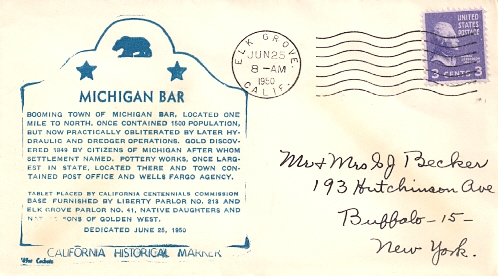 MICHIGAN BAR
BOOMING TOWN OF MICHIGAN BAR, LOCATED ONE
MILE TO NORTH, ONCE CONTAINED 1500 POPULATION,
BUT NOW PRACTICALLY OBLITERATED BY LATER HY-
DRAULIC AND DREDGER OPERATIONS. GOLD DISCOV-
ERED 1849 BY CITIZENS OF MICHIGAN AFTER WHOM
SETTLEMENT NAMED. POTTERY WORKS, ONCE LARG-
EST IN STATE, LOCATED THERE AND TOWN CON-
TAINED POST OFFICE AND WELLS FARGO AGENCY.
TABLET PLACED BY CALIFORNIA CENTENNIALS COMMISSION
BASE FURNISHED BY LIBERTY PARLOR NO. 213 AND
ELK GROVE PARLOR NO. 41, NATIVE DAUGHTERS AND
SONS OF GOLDEN WEST.
DEDICATED JUNE 25, 1950
CALIFORNIA HISTORICAL MARKER
'49er Cachets
ELK GROVE
JUN 25
8-AM
1950
CALIF.
UNITED
STATES
POSTAGE
3 CENTS 3
Mr & Mrs S J Becker
193 Hutchinson Ave
Buffalo -15-
New York.